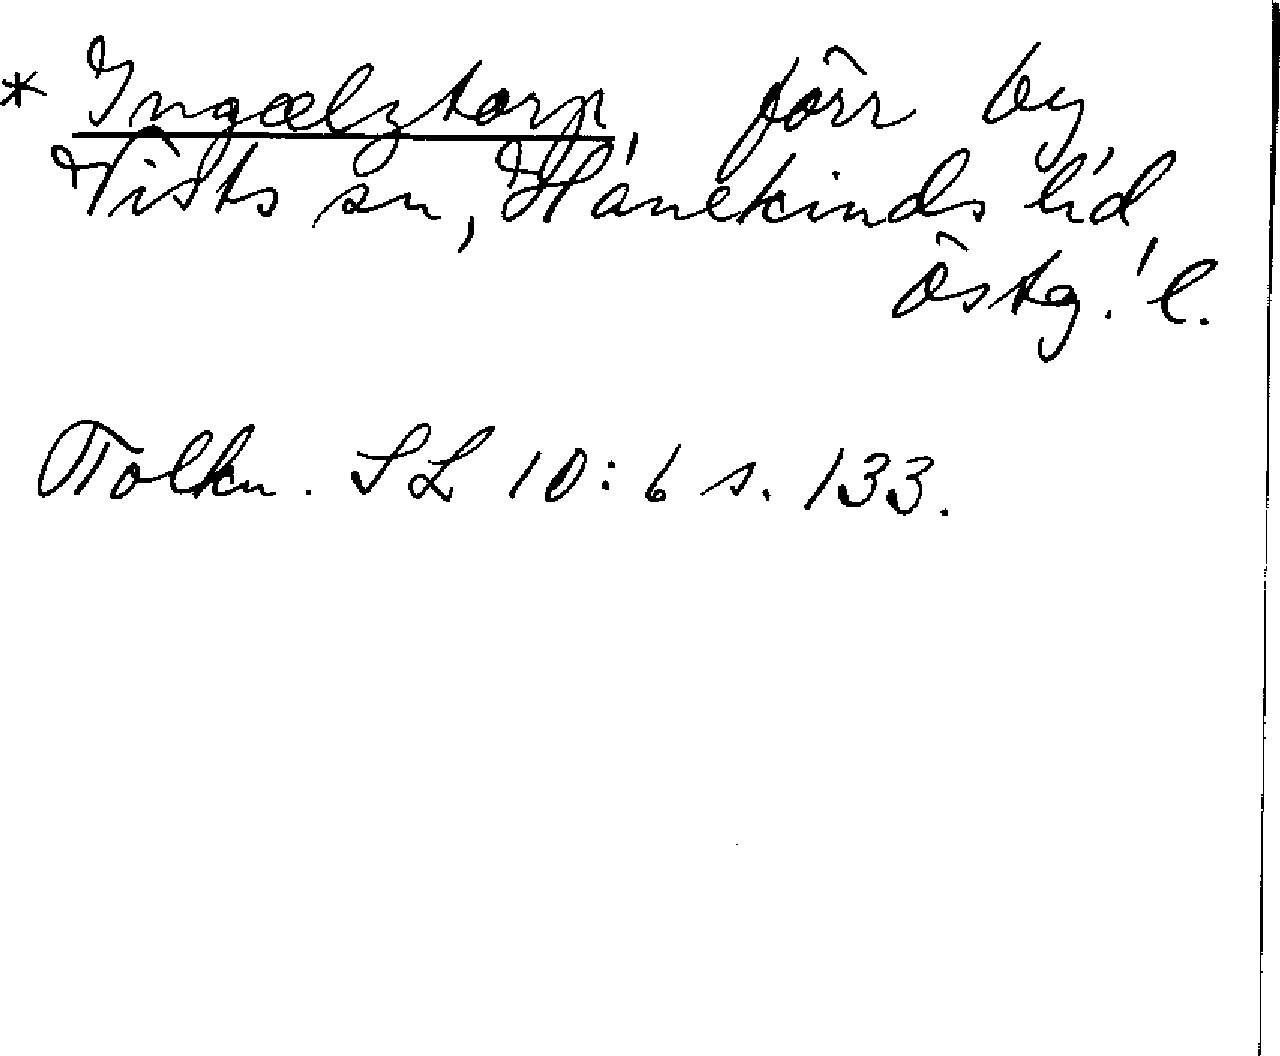 * Ingælztorp, förr by
Vists sn, Hanekinds hd,
Östg. l.
Tolkn. SL 10:6 s. 133.